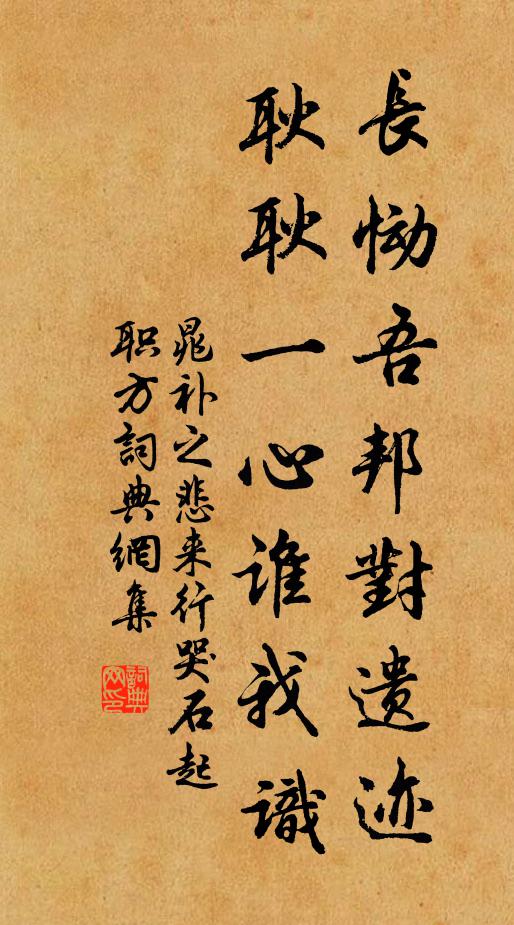 長慟吾邦對遗迹
耿耿一心谁我識
晁补之悲来行哭石起
职方詞典網集
詞典
网印